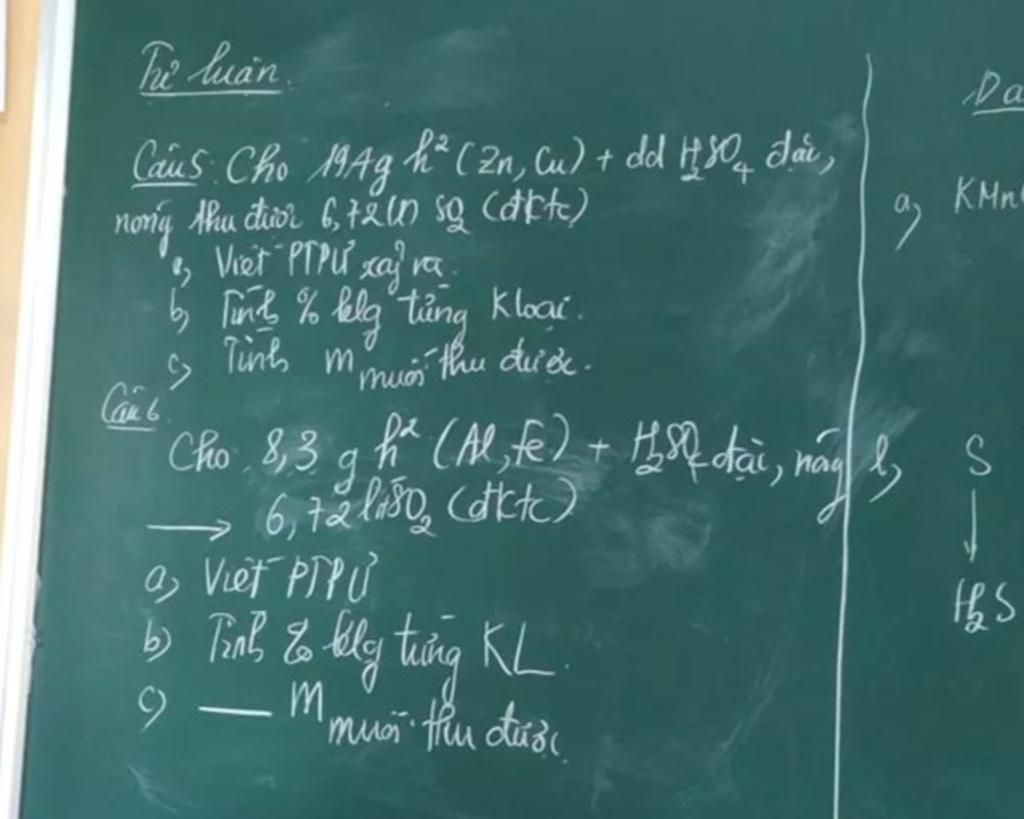 Tự luận.
Câu 5: Cho 19,4g h² (Zn, Cu) + dd H₂SO₄ đặc,
nóng thu được 6,72 (l) SO₂ (đktc)
a, Viết PTPƯ xảy ra.
b, Tính % klg từng kloại.
c, Tính m muối thu được.
Câu 6.
Cho 8,3 g h² (Al, Fe) + H₂SO₄ đặc, nóng
→ 6,72 lít SO₂ (đktc)
a, Viết PTPƯ
b) Tính % klg từng KL.
c) — m muối thu được.
a, KMn
S
↓
H₂S